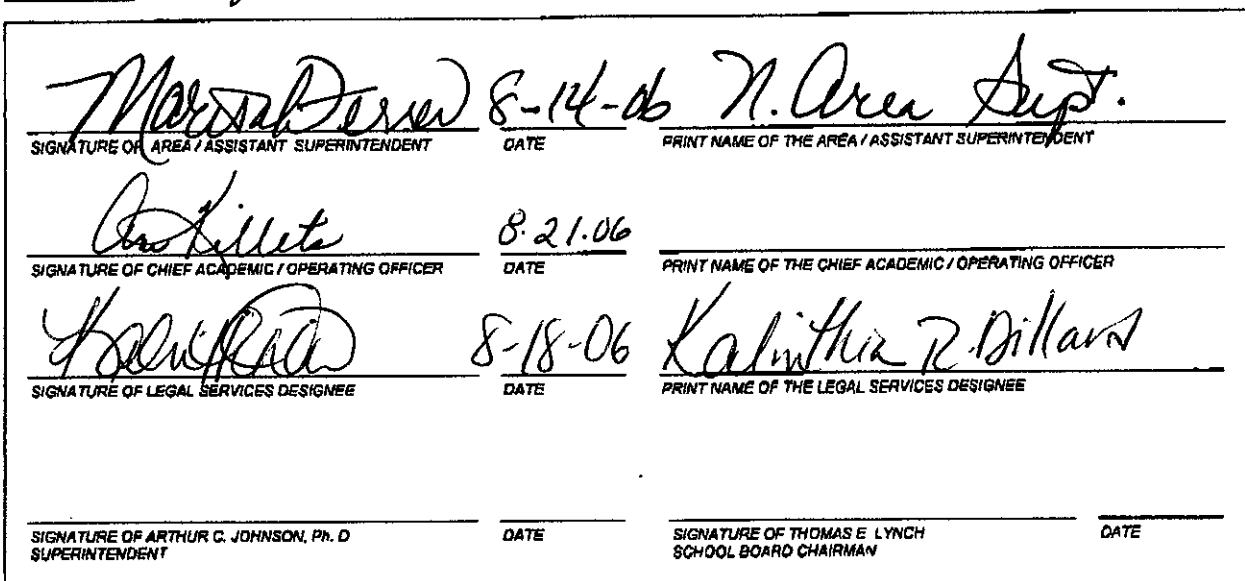 8-14-06 N. Area Supt.
SIGNATURE OF AREA / ASSISTANT SUPERINTENDENT DATE PRINT NAME OF THE AREA / ASSISTANT SUPERINTENDENT
Ann Killets 8.21.06
SIGNATURE OF CHIEF ACADEMIC / OPERATING OFFICER DATE PRINT NAME OF THE CHIEF ACADEMIC / OPERATING OFFICER
8-18-06 Kalinthia R. Dillard
SIGNATURE OF LEGAL SERVICES DESIGNEE DATE PRINT NAME OF THE LEGAL SERVICES DESIGNEE
SIGNATURE OF ARTHUR C. JOHNSON, Ph. D DATE SIGNATURE OF THOMAS E LYNCH DATE
SUPERINTENDENT SCHOOL BOARD CHAIRMAN